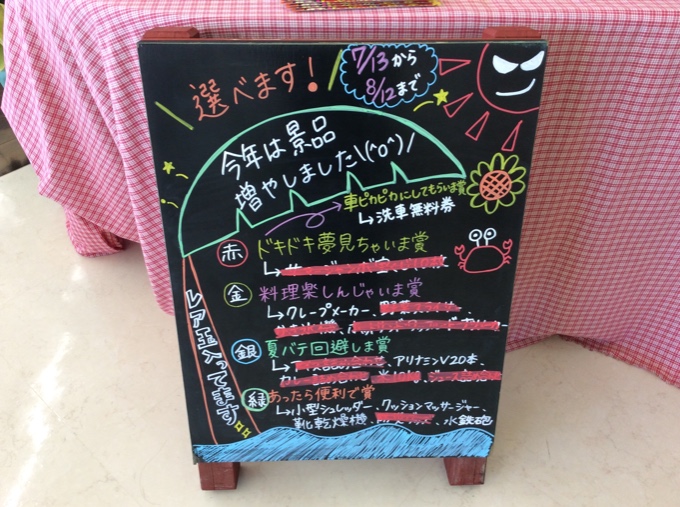 選べます!
7/13から
8/12まで
今年は景品
増やしました\(^o^)/
車ピカピカにしてもらいま賞
↳洗車無料券
赤 ドキドキ夢見ちゃいま賞
金 料理楽しんじゃいま賞
↳クレープメーカー、
銀 夏バテ回避しま賞
アリナミンV20本、
緑 あったら便利で賞
↳小型シュレッダー、クッションマッサージャー、
靴乾燥機、水鉄砲
レア玉入ってます